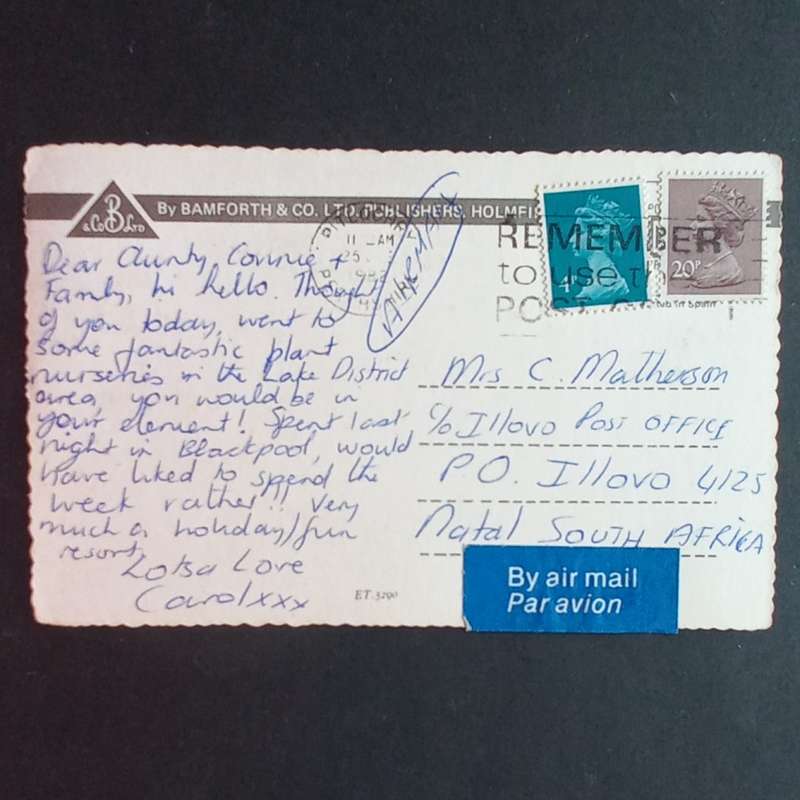 B
& Co LTD
By BAMFORTH & CO. LTD. PUBLISHERS, HOLMFI
11 AM
AIRMAIL
REMEMBER
to use th
POST
4P
20P
Dear Aunty Connie +
Family, hi hello. Thought
of you today, went to
some fantastic plant
nurseries in the Lake District
area you would be in
your element! Spent last
night in Blackpool, would
have liked to spend the
week rather!! Very
much a holiday/fun
resort
Lotsa Love
Carolxxx
Mrs C. Matherson
c/o Illovo POST OFFICE
P.O. Illovo 4125
Natal SOUTH AFRICA
By air mail
Par avion
ET.3290